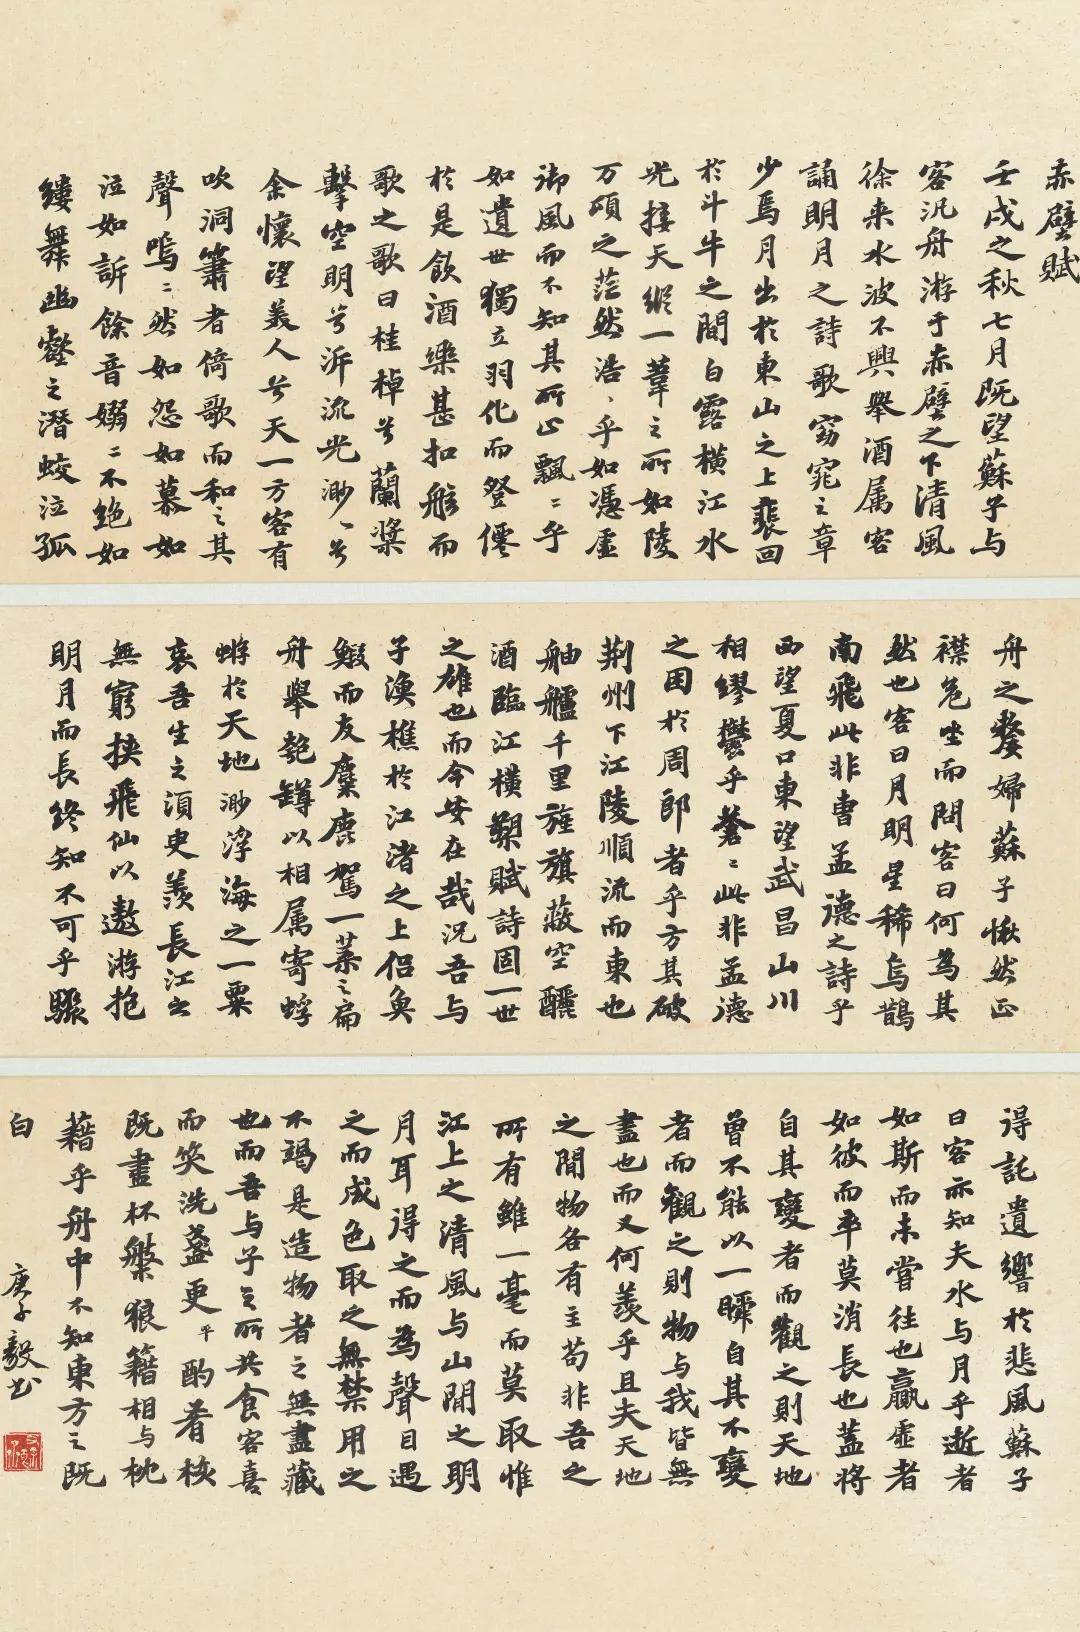 赤壁賦
壬戌之秋七月既望蘇子与
客汎舟游于赤壁之下清風
徐来水波不興舉酒属客
誦明月之詩歌窈窕之章
少焉月出於東山之上裴回
於斗牛之間白露橫江水
光接天縱一葦之所如陵
万頃之茫然浩〻乎如馮虛
御風而不知其所止飄〻乎
如遺世獨立羽化而登僊
於是飲酒樂甚扣舷而
歌之歌曰桂棹兮蘭槳
擊空明兮泝流光渺〻兮
余懷望美人兮天一方客有
吹洞簫者倚歌而和之其
聲嗚〻然如怨如慕如
泣如訴餘音嫋〻不絶如
縷舞幽壑之潛蛟泣孤
舟之嫠婦蘇子愀然正
襟危坐而問客曰何為其
然也客曰月明星稀烏鵲
南飛此非曹孟德之詩乎
西望夏口東望武昌山川
相繆鬱乎蒼〻此非孟德
之困於周郎者乎方其破
荆州下江陵順流而東也
舳艫千里旌旗蔽空釃
酒臨江橫槊賦詩固一世
之雄也而今安在哉況吾与
子漁樵於江渚之上侣魚
鰕而友麋鹿駕一葉之扁
舟舉匏罇以相属寄蜉
蝣於天地渺浮海之一粟
哀吾生之須臾羨長江之
無窮挾飛仙以遨游抱
明月而長終知不可乎驟
得託遺響於悲風蘇子
曰客亦知夫水与月乎逝者
如斯而未嘗往也贏虛者
如彼而卒莫消長也蓋将
自其變者而觀之則天地
曾不能以一瞬自其不變
者而觀之則物与我皆無
盡也而又何羨乎且夫天地
之間物各有主苟非吾之
所有雖一毫而莫取惟
江上之清風与山間之明
月耳得之而為聲目遇
之而成色取之無禁用之
不竭是造物者之無盡藏
也而吾与子之所共食客喜
而笑洗盞更平酌肴核
既盡杯盤狼籍相与枕
藉乎舟中不知東方之既
白
庚子毅书